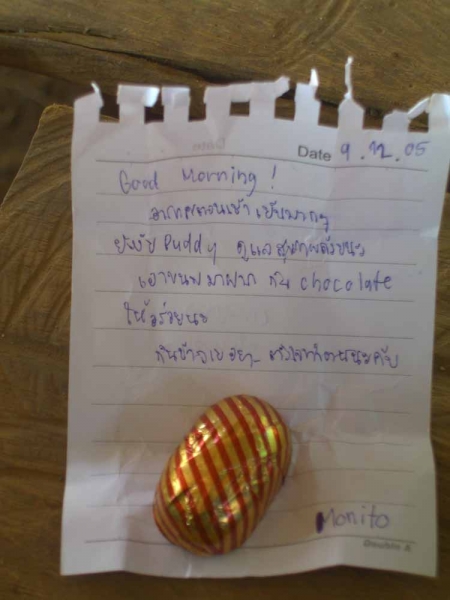 Date 9.12.05
Good Morning!
อากาศตอนเช้า เย็นมากๆ
Puddy ดูแลสุขภาพด้วยนะ
เอาขนมมาฝาก กิน chocolate
ให้อร่อยนะ
กินข้าวเยอะๆ
Monito
Double A